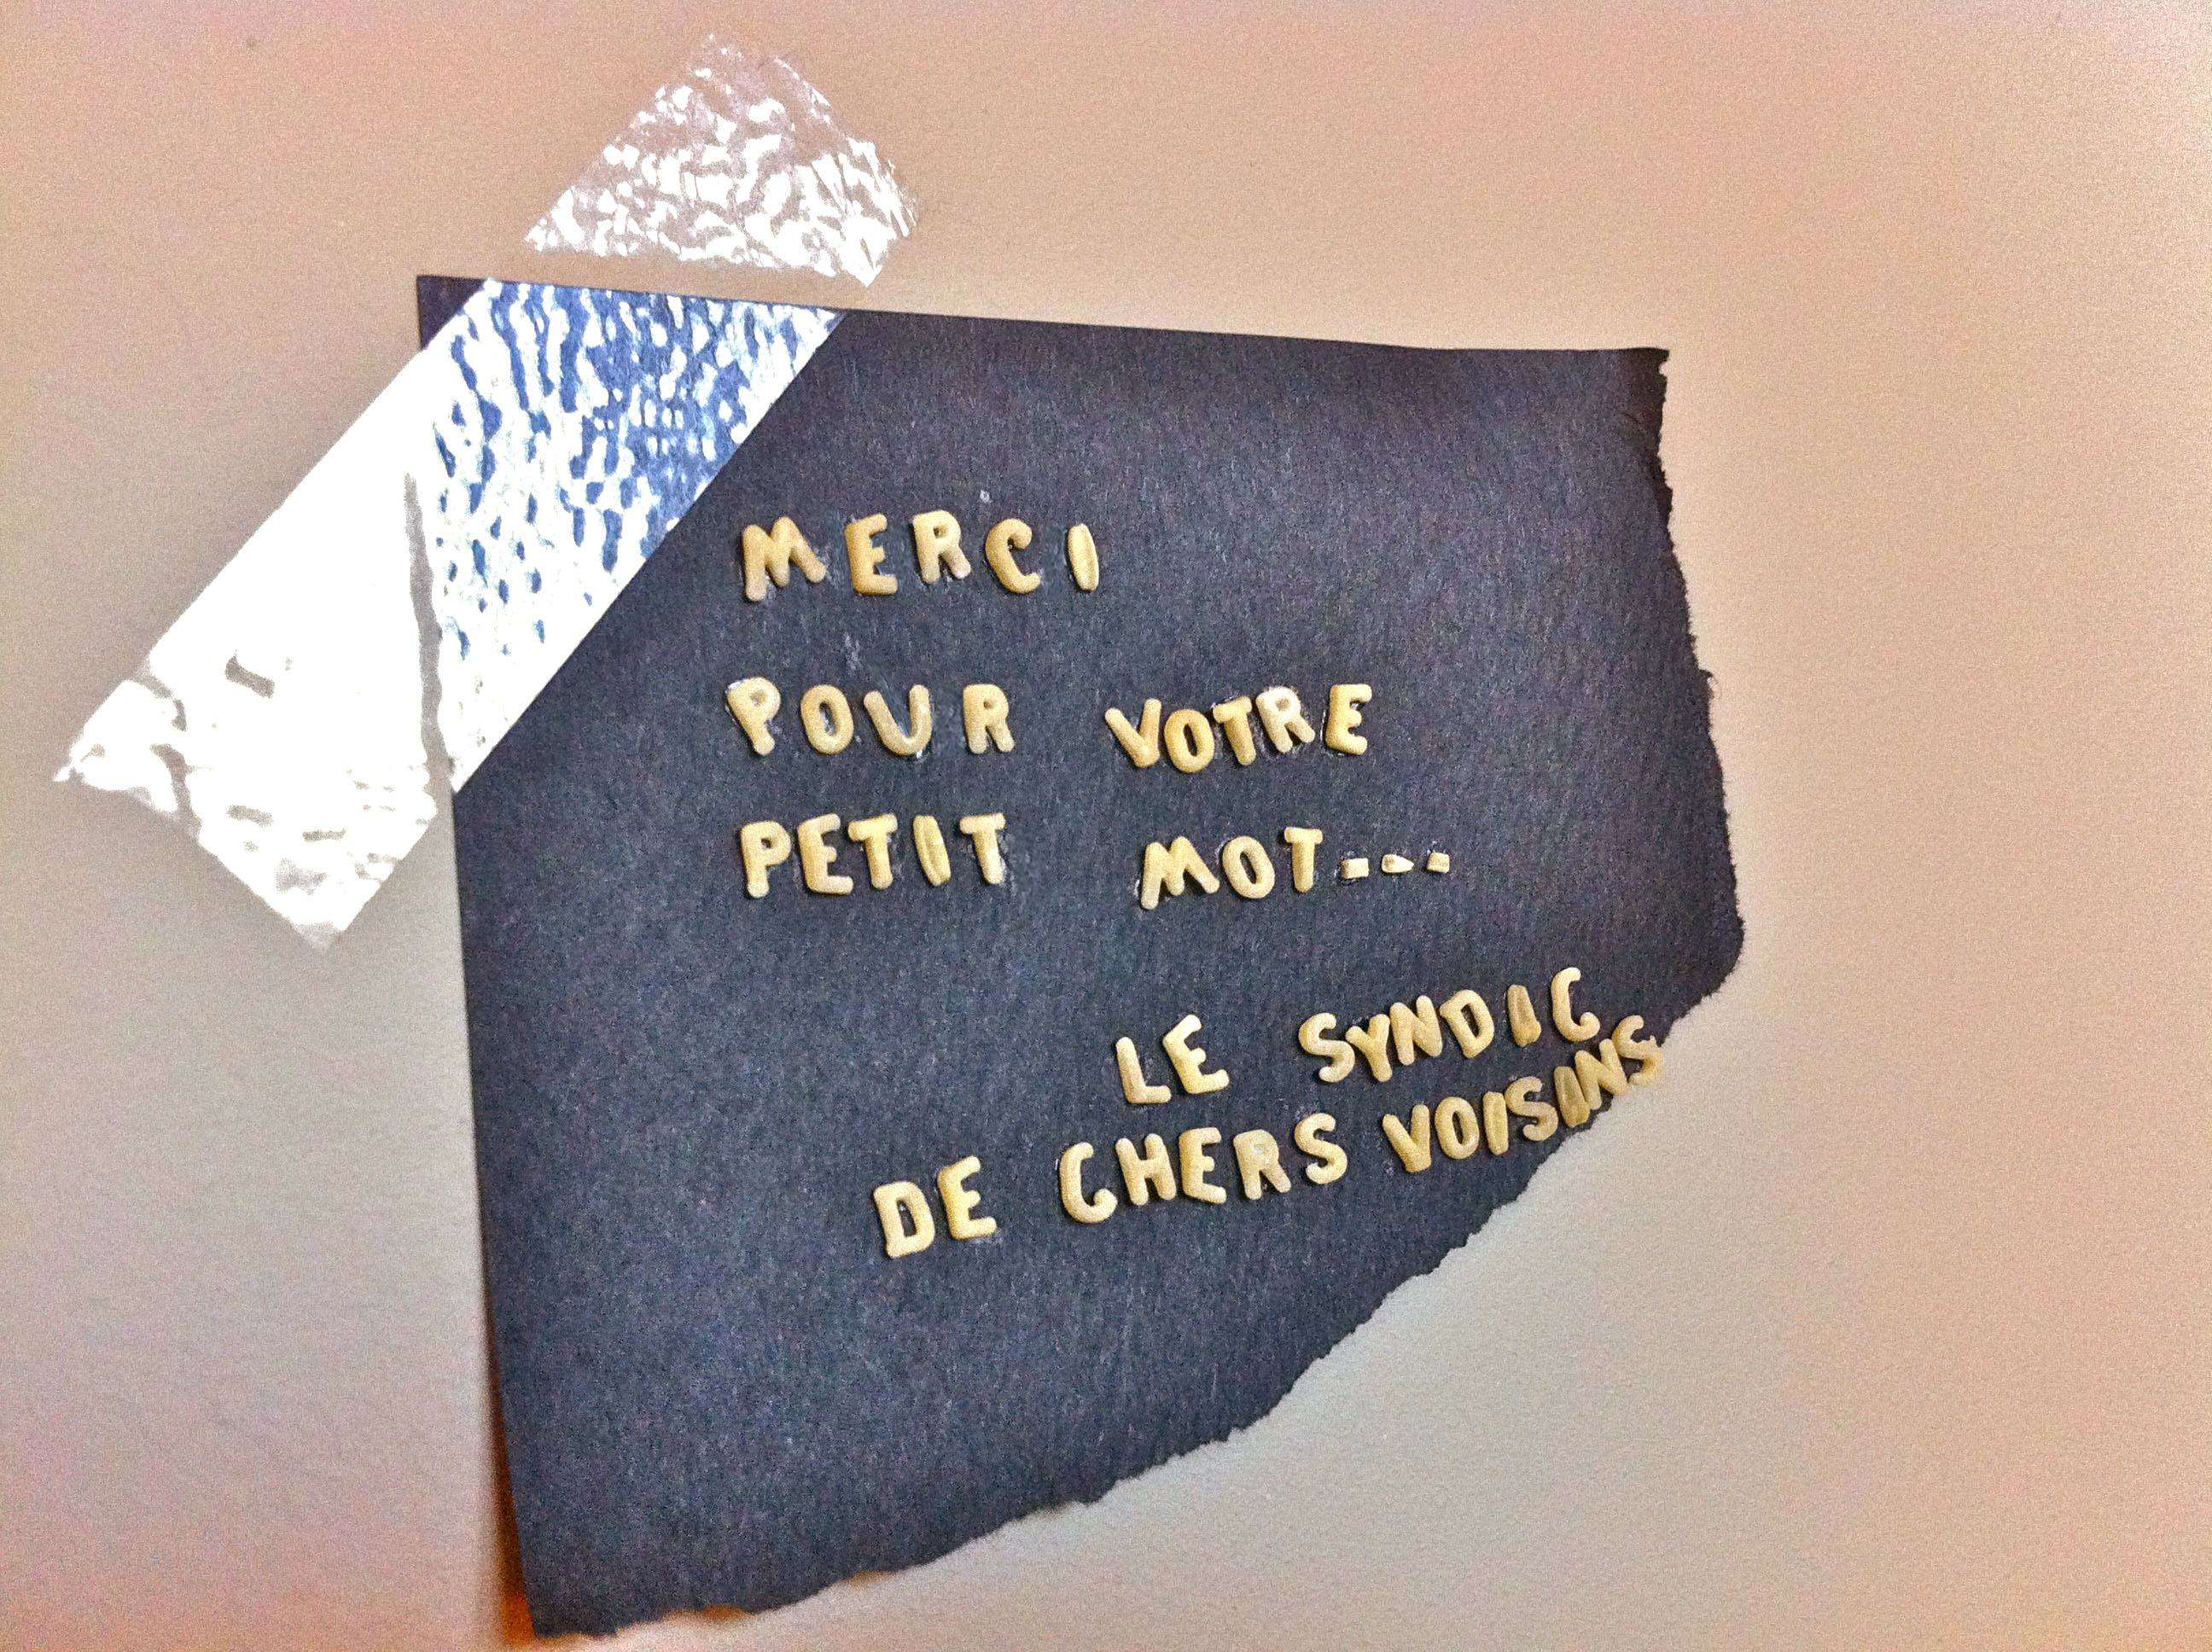 MERCI
POUR VOTRE
PETIT MOT...
LE SYNDIC
DE CHERS VOISINS